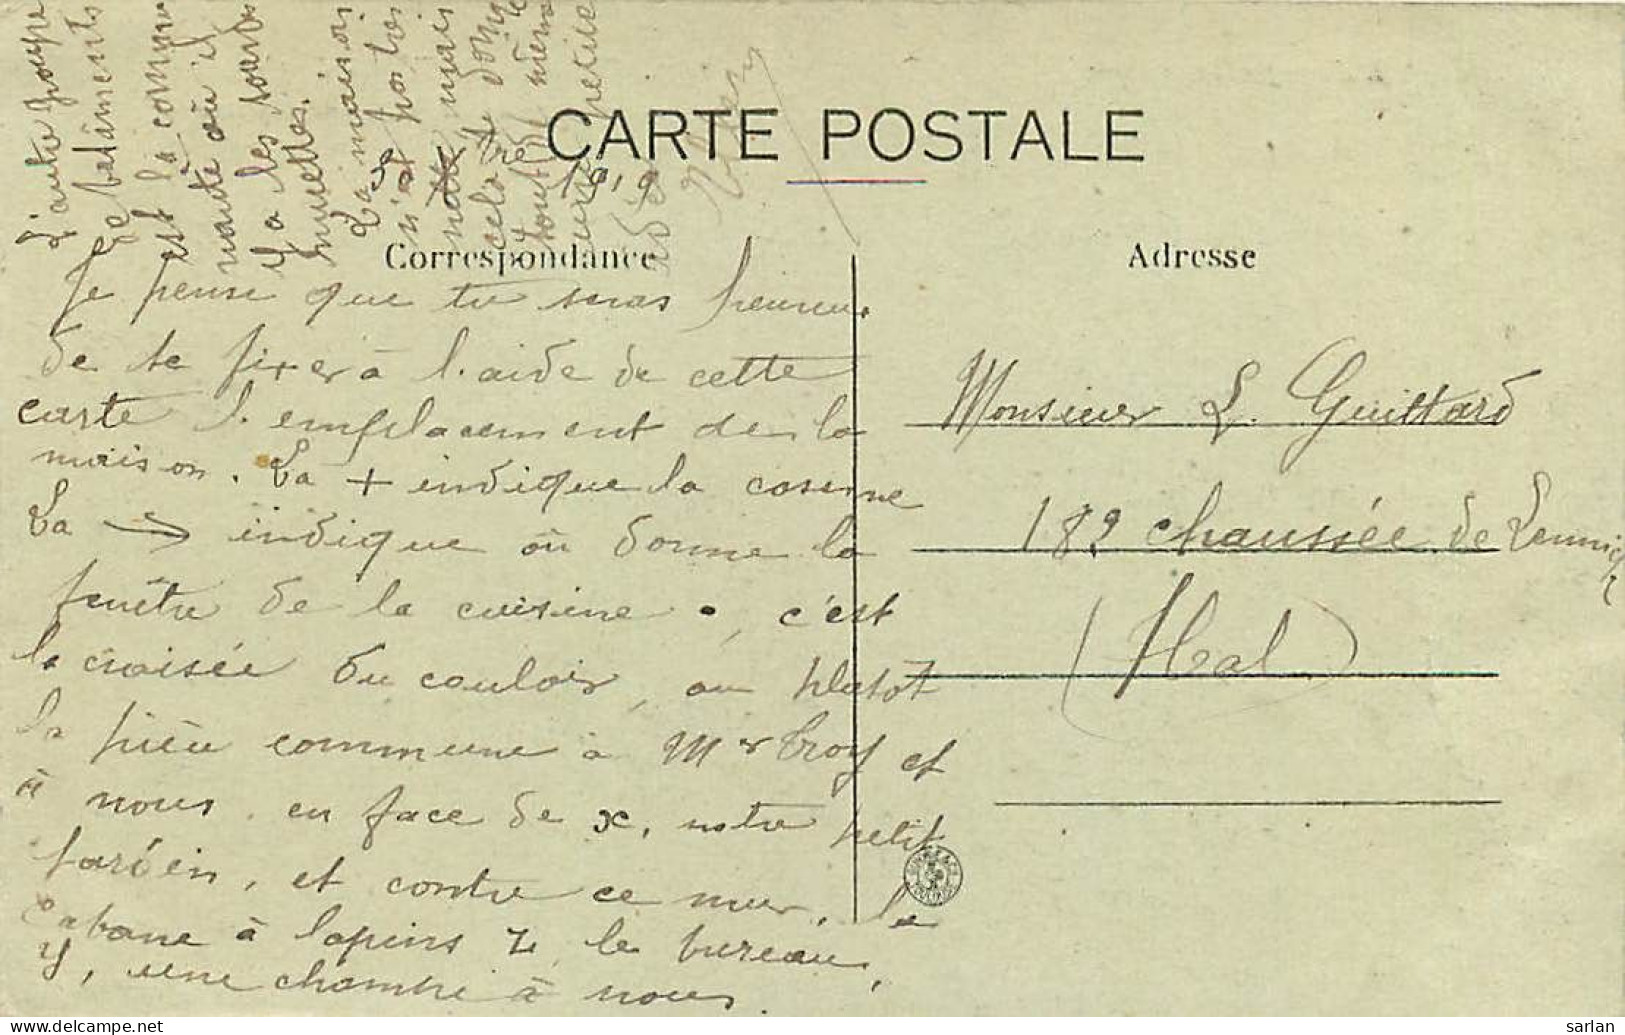 CARTE POSTALE
Correspondance
Adresse
Je pense que tu seras heureux
de te fixer à l'aide de cette
carte l'emplacement de la
maison. La + indique la caserne
La → indique où donne la
fenêtre de la cuisine •, c'est
la croisée du couloir, ou plutôt
la pièce commune à Mr Croy et
à nous. en face de x, notre petit
jardin, et contre ce mur, la
cabane à lapins z, le bureau,
y, une chambre à nous.
L'autre groupe
de bâtiments
est la commu
nauté où il
y a les sourds
muettes.
La maison
n'est pas très
nette, mais
cela te donne
tout de même
une petite
idée
Monsieur L. Guittard
189 chaussée de Lennick
(Hal)
sarlan